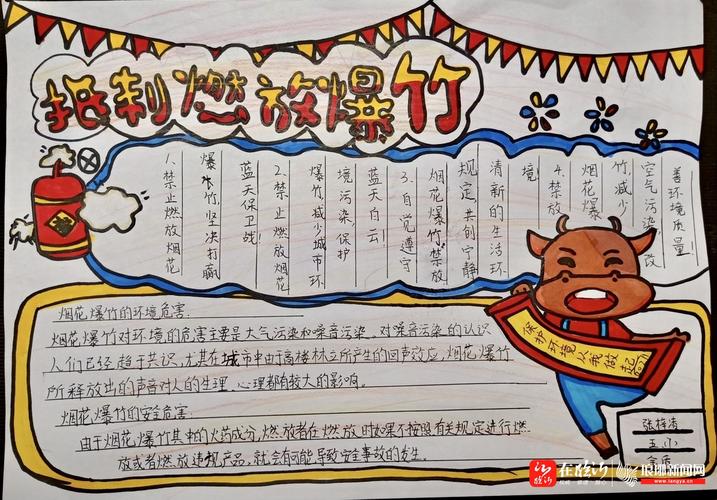 抵制燃放爆竹
1、禁止燃放烟花
爆竹坚决打赢
蓝天保卫战!
2、禁止燃放烟花
爆竹减少城市环
境污染,保护
蓝天白云
3、自觉遵守
烟花爆竹禁放
规定共创宁静
清新的生活环
境
4、禁放
烟花爆
竹减少
空气污染,改
善环境质量!
烟花爆竹的环境危害:
烟花爆竹对环境的危害主要是大气污染和噪音污染,对噪音污染的认识
人们已经趋于共识,尤其在城市中由于高楼林立所产生的回声效应,烟花爆竹
所释放出的声音对人的生理、心理都有较大的影响。
烟花爆竹的安全危害:
由于烟花爆竹其中的火药成分,燃放者在燃放时如果不按照有关规定进行燃
放或者燃放违规产品,就会有可能导致安全事故的发生。
保护环境从我做起
张梓
五小
在临沂
琅琊新闻网
www.langya.cn